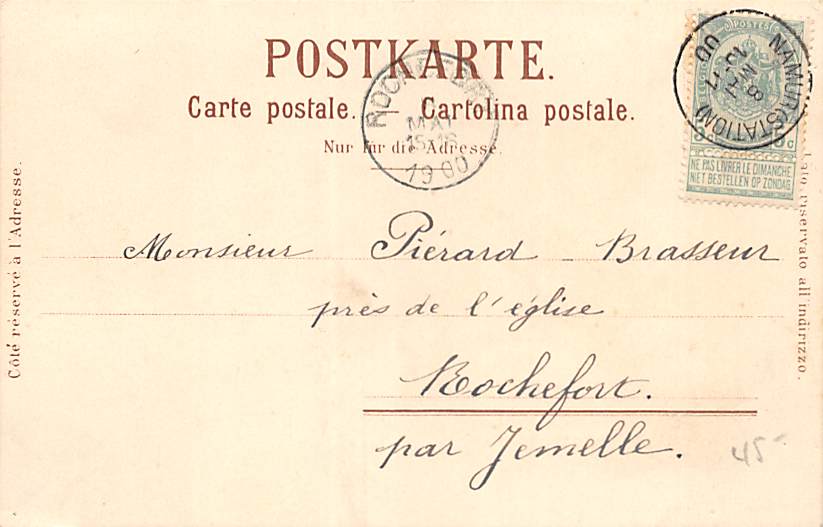 POSTKARTE.
Carte postale. — Cartolina postale.
Nur für die Adresse.
MAI
1900
POSTES
NAMUR (STATION)
00
NE PAS LIVRER LE DIMANCHE
NIET BESTELLEN OP ZONDAG
Côté réservé à l'Adresse.
Lato riservato all'indirizzo.
Monsieur Piérard - Brasseur
près de l'église
Rochefort.
par Jemelle.
45